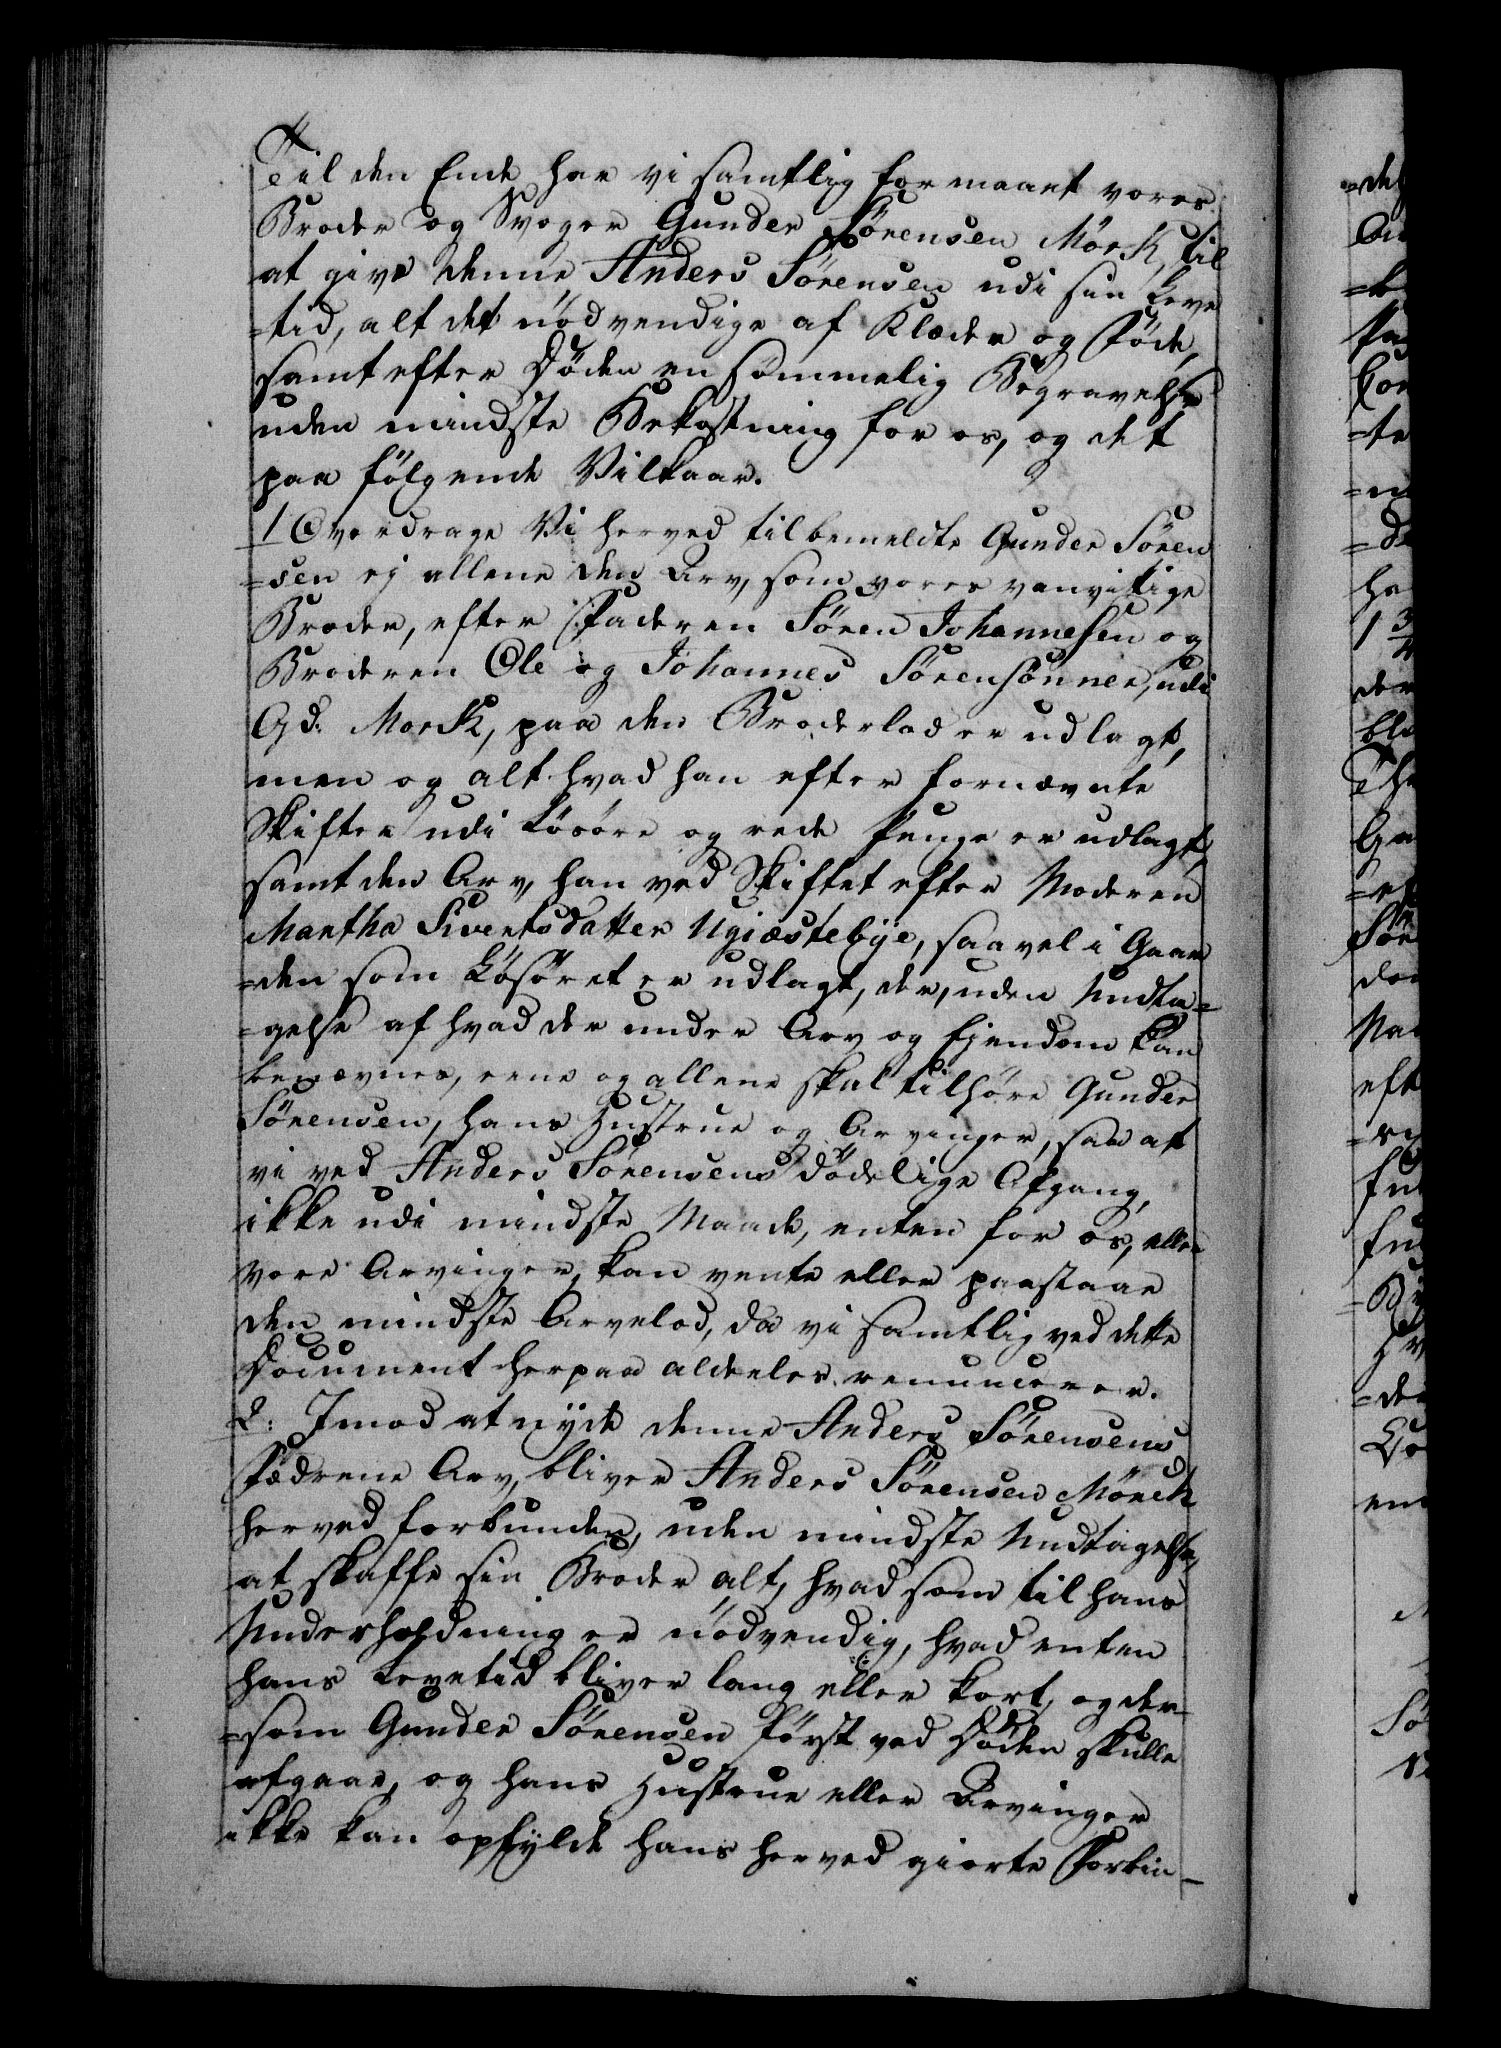 Til den Ende har vi samtlig formaaet vores
Broder og Svoger Gunder Sörensen Mörk, til
at give denne Anders Sörensen udi sin Leve
=tid, alt det nödvendige af Klæder og Föde,
samt efter Döden en sömmelig Begravelse
uden mindste Bekostning for os, og det
paa fölgende Vilkaar.
1 Overdrage Vi herved til bemeldte Gunder Sören
=sen ej allene den Arv, som vores vanvitige
Broder, efter Faderen Sören Johannesen og
Broderen Ole og Johannes Sörensönner, udi
Gd: Mork, paa den Broderlod er udlagt,
men og alt hvad han efter fornævnte
Skifter udi Lösöre og rede Penge er udlagt,
samt den Arv, han ved Skiftet efter Moderen
Martha Sivertsdatter Ugiæstebye, saavel i Gaar
=den som Lösöret er udlagt, der, uden Undta=
=gelse af hvad der under Arv og Ejendom kan
benævnes, eene og allene skal tilhöre Gunder
Sörensen, hans Hustrue og Arvinger, saa at
vi ved Anders Sörensens dödelige Afgang,
ikke udi mindste Maade, enten for os, eller
vore Arvinger, kan vente eller paastaae
den mindste Arvelod, da vi samtlig ved dette
Document herpaa aldeeles renuncerer.
2: Imod at nyde denne Anders Sörensens
Fædrene Arv, bliver Anders Sörensen Mörck
herved forbunden, uden mindste Undtagelse,
at skaffe sin Broder alt, hvad som til hans
Underholdning er nödvendig, hvad enten
hans Levetid bliver lang eller kort, og der-
=som Gunder Sörensen först ved Döden skulle
afgaae, og hans Hustrue eller Arvinger
ikke kan opfylde hans herved giorte Forbin-